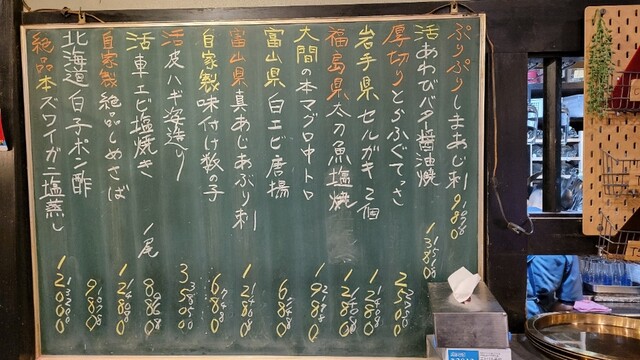 ぷりぷりしまあじ刺 980
活あわびバタ醤油焼 1380
厚切りとらふぐてっさ 2500
岩手県セルガキ2個 1280
福島県太刀魚塩焼 1280
大間の本マグロ中トロ 1980
富山県白エビ唐揚 680
富山県真あじあぶり刺 1280
自家製味付け数の子 680
活皮ハギ姿造り 3500
活車エビ塩焼き 1尾 880
自家製絶品しめさば 1280
北海道白子ポン酢 980
絶品本ズワイガニ塩蒸し 12000